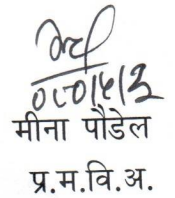 ०८०।५।३
मीना पौडेल
प्र.म.वि.अ.